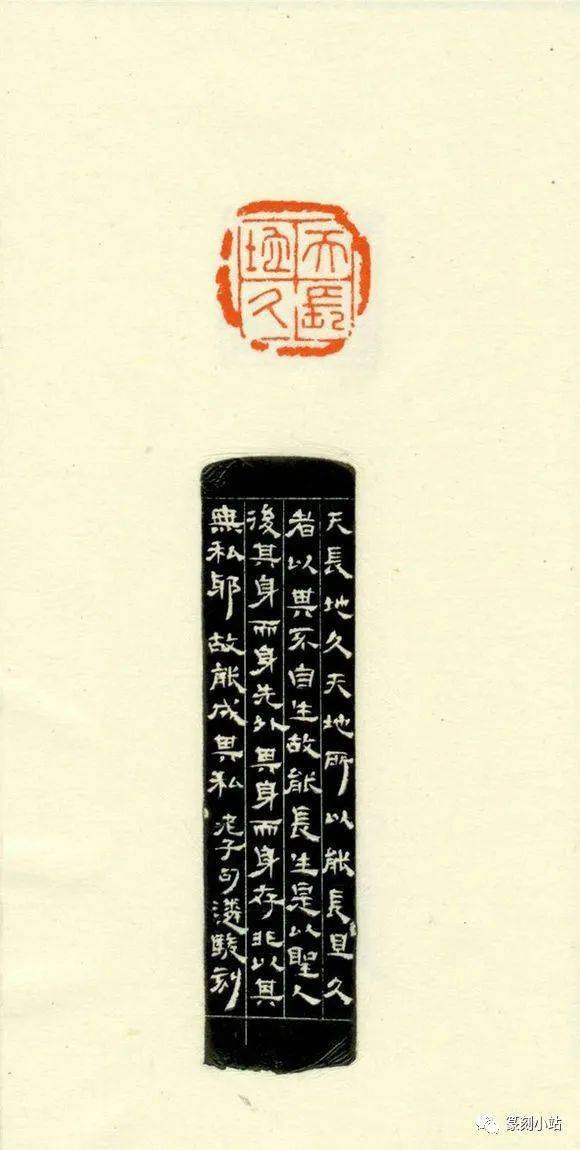 天長
地久
天長地久天地所以能長且久
者以其不自生故能長生是以聖人
後其身而身先外其身而身存非以其
無私耶故能成其私老子句駿刻
篆刻小站